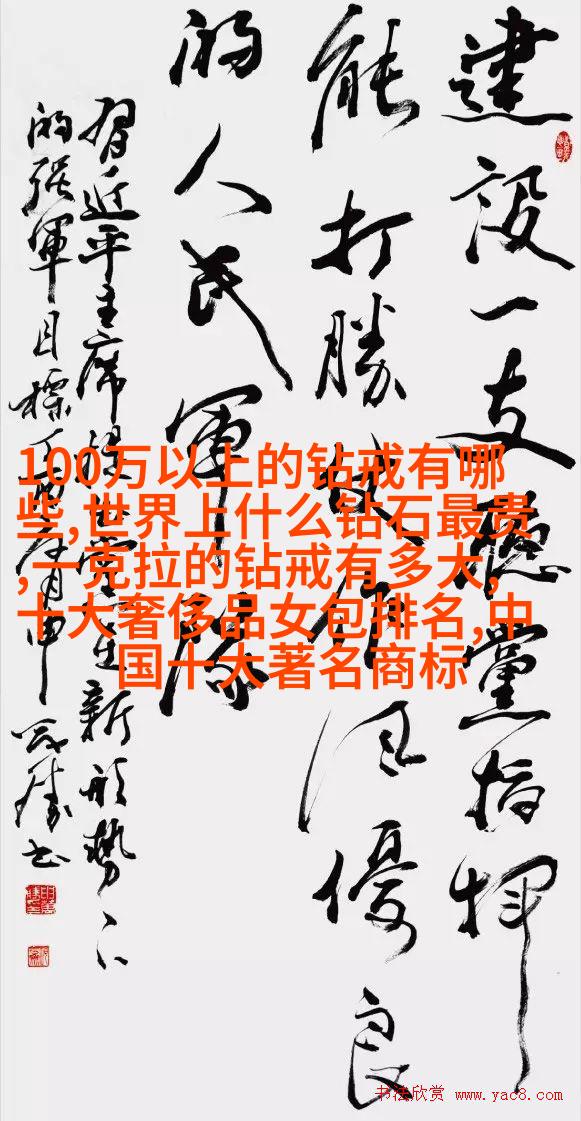 建設一支聽黨指揮
能打勝仗作風優良
的人民軍隊
習近平主席黨在新形勢下
的强軍目標
100万以上的钻戒有哪
些,世界上什么钻石最贵
,一克拉的钻戒有多大,
十大奢侈品女包排名,中
国十大著名商标
书法欣赏 www.yac8.com